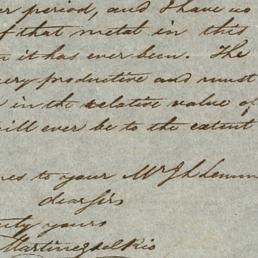 er period, and I have no
of that metal in this
n it has ever been. The
very productive and must
in the relative value of
will ever be to the extent
to your Mr
dear sir
yours